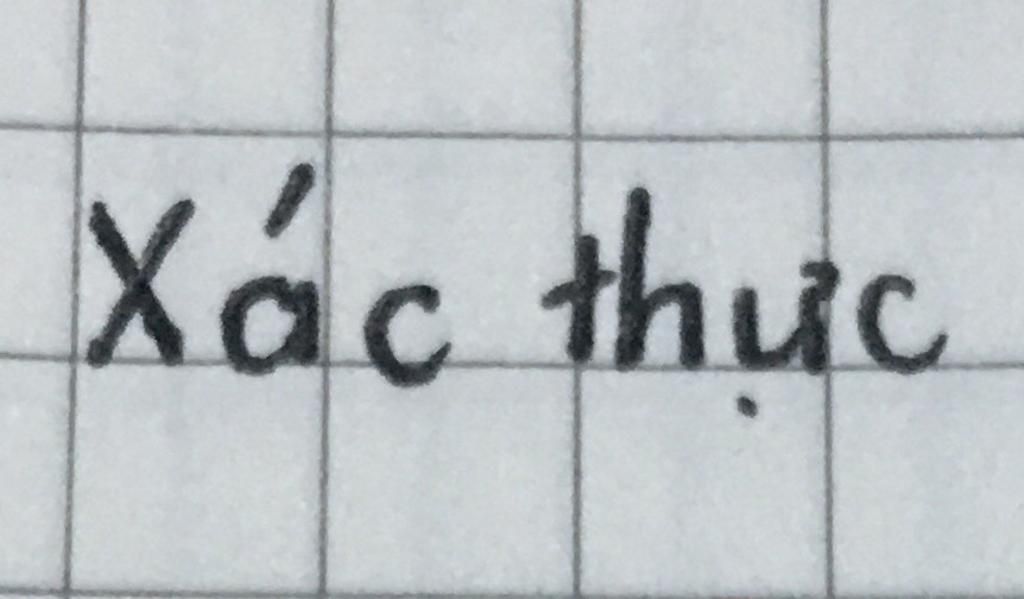 Xác thực